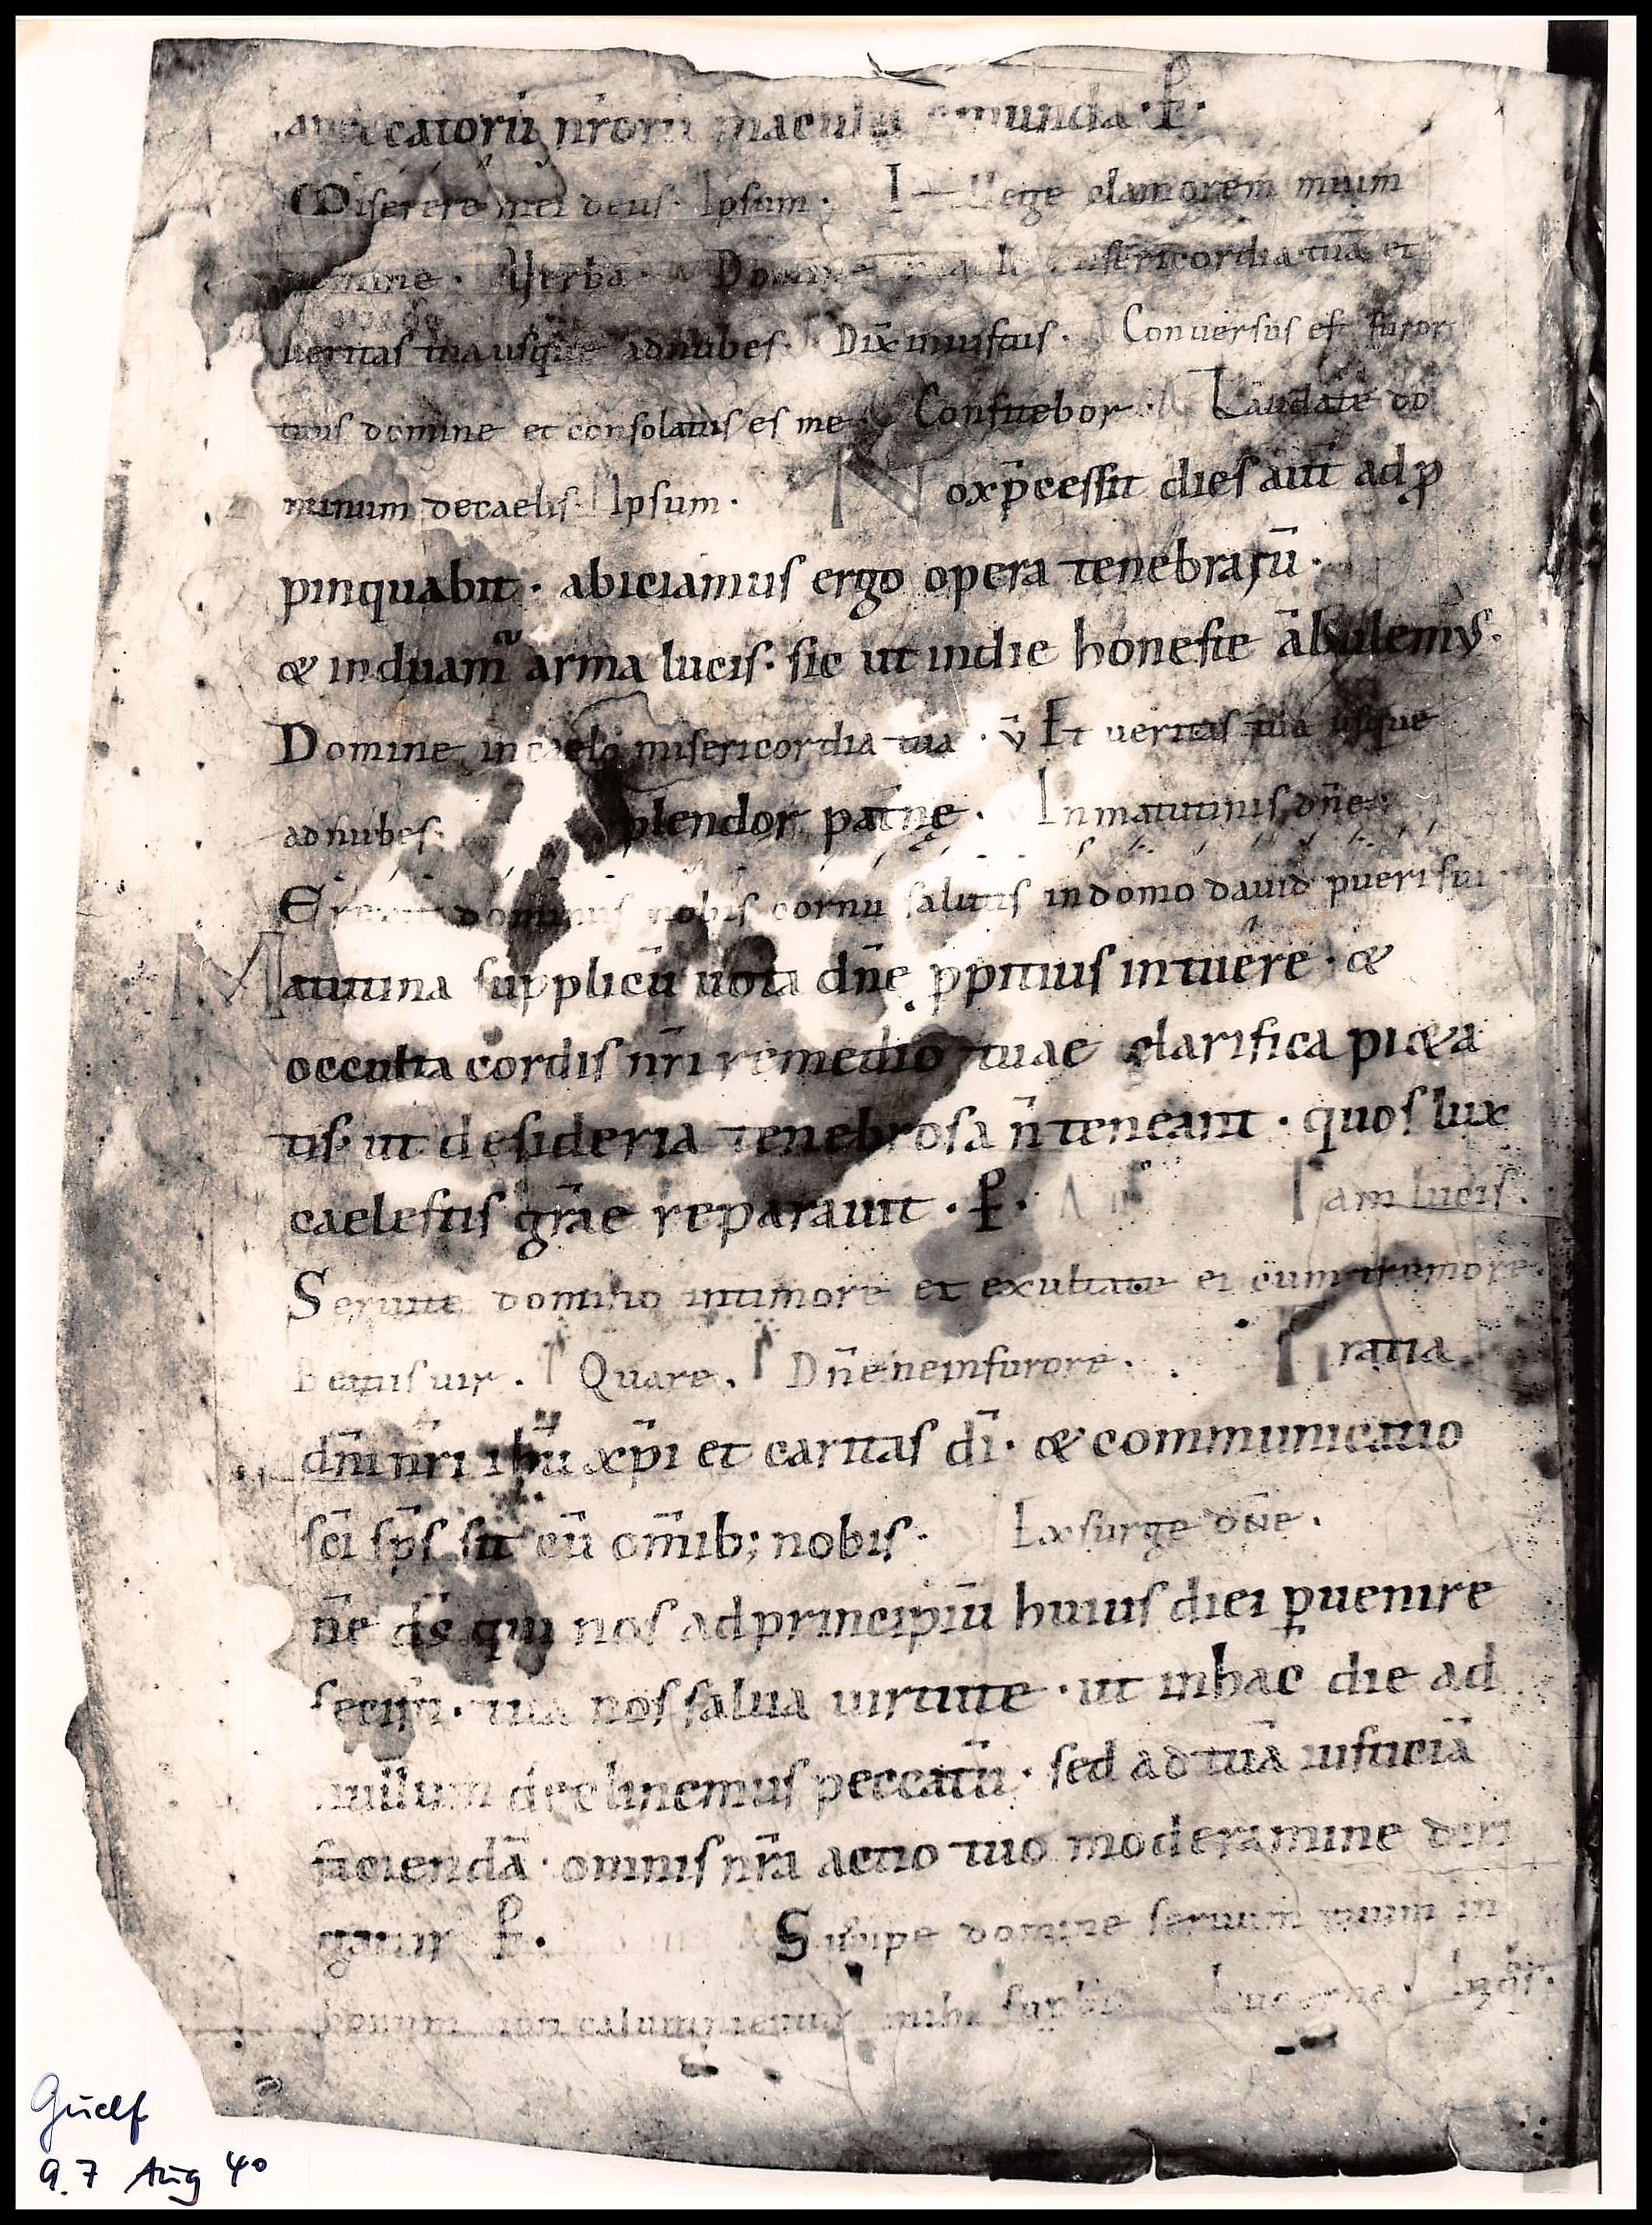 peccatorū nr̄orū maculas emunda · P̄ ·
Miserere mei deus · Ipsum · Intellege clamorem meum
domine · Verba · Domine misericordia tua et
ueritas tua usque ad nubes · Dix̄ iniustus · Conuersus est furor
tuus domine et consolatus es me Confitebor · Laudate do
minum de caelis · Ipsum · Nox p̄cessit dies aut̄ ad ꝓ
pinquabit · abiciamus ergo opera tenebrarū ·
& induam̄ arma lucis · sic ut in die honeste ābulem̄ꝰ ·
Domine in caelo misericordia tua · v̄ Et ueritas tua usque
ad nubes · Splendor pat̄nę · v In matutinis dn̄e ·
Erexit dominus nobis cornu salutis in domo dauid pueri sui ·
Matutina supplicū uota dn̄e ꝓpitius intuere · &
occulta cordis nr̄i remedio tuae clarifica pi&a
tis · ut desideria tenebrosa n̄ teneant · quos lux
caelestis gr̄ae reparauit · P̄ · Iam lucis ·
Seruite domino in timore et exultate ei cum tremore ·
Beatus uir · Quare · Dn̄e ne in furore · Gratia
dn̄i nr̄i ih̄u xp̄i et caritas dī · & communicatio
sc̄i sp̄s sit cū om̄ib; nobis · Exsurge dn̄e ·
n̄e ds̄ qui nos ad principiū huius diei ꝑuenire
fecisti · tua nos salua uirtute · ut in hac die ad
nullum declinemus peccatū · sed ad tuā iusticiā
faciendā · omnis nr̄a actio tuo moderamine diri
gatur P̄ · Suscipe domine seruum tuum in
bonum non calumnientur mihi superbi Lucerna ·
Guelf
9.7 Aug 4°